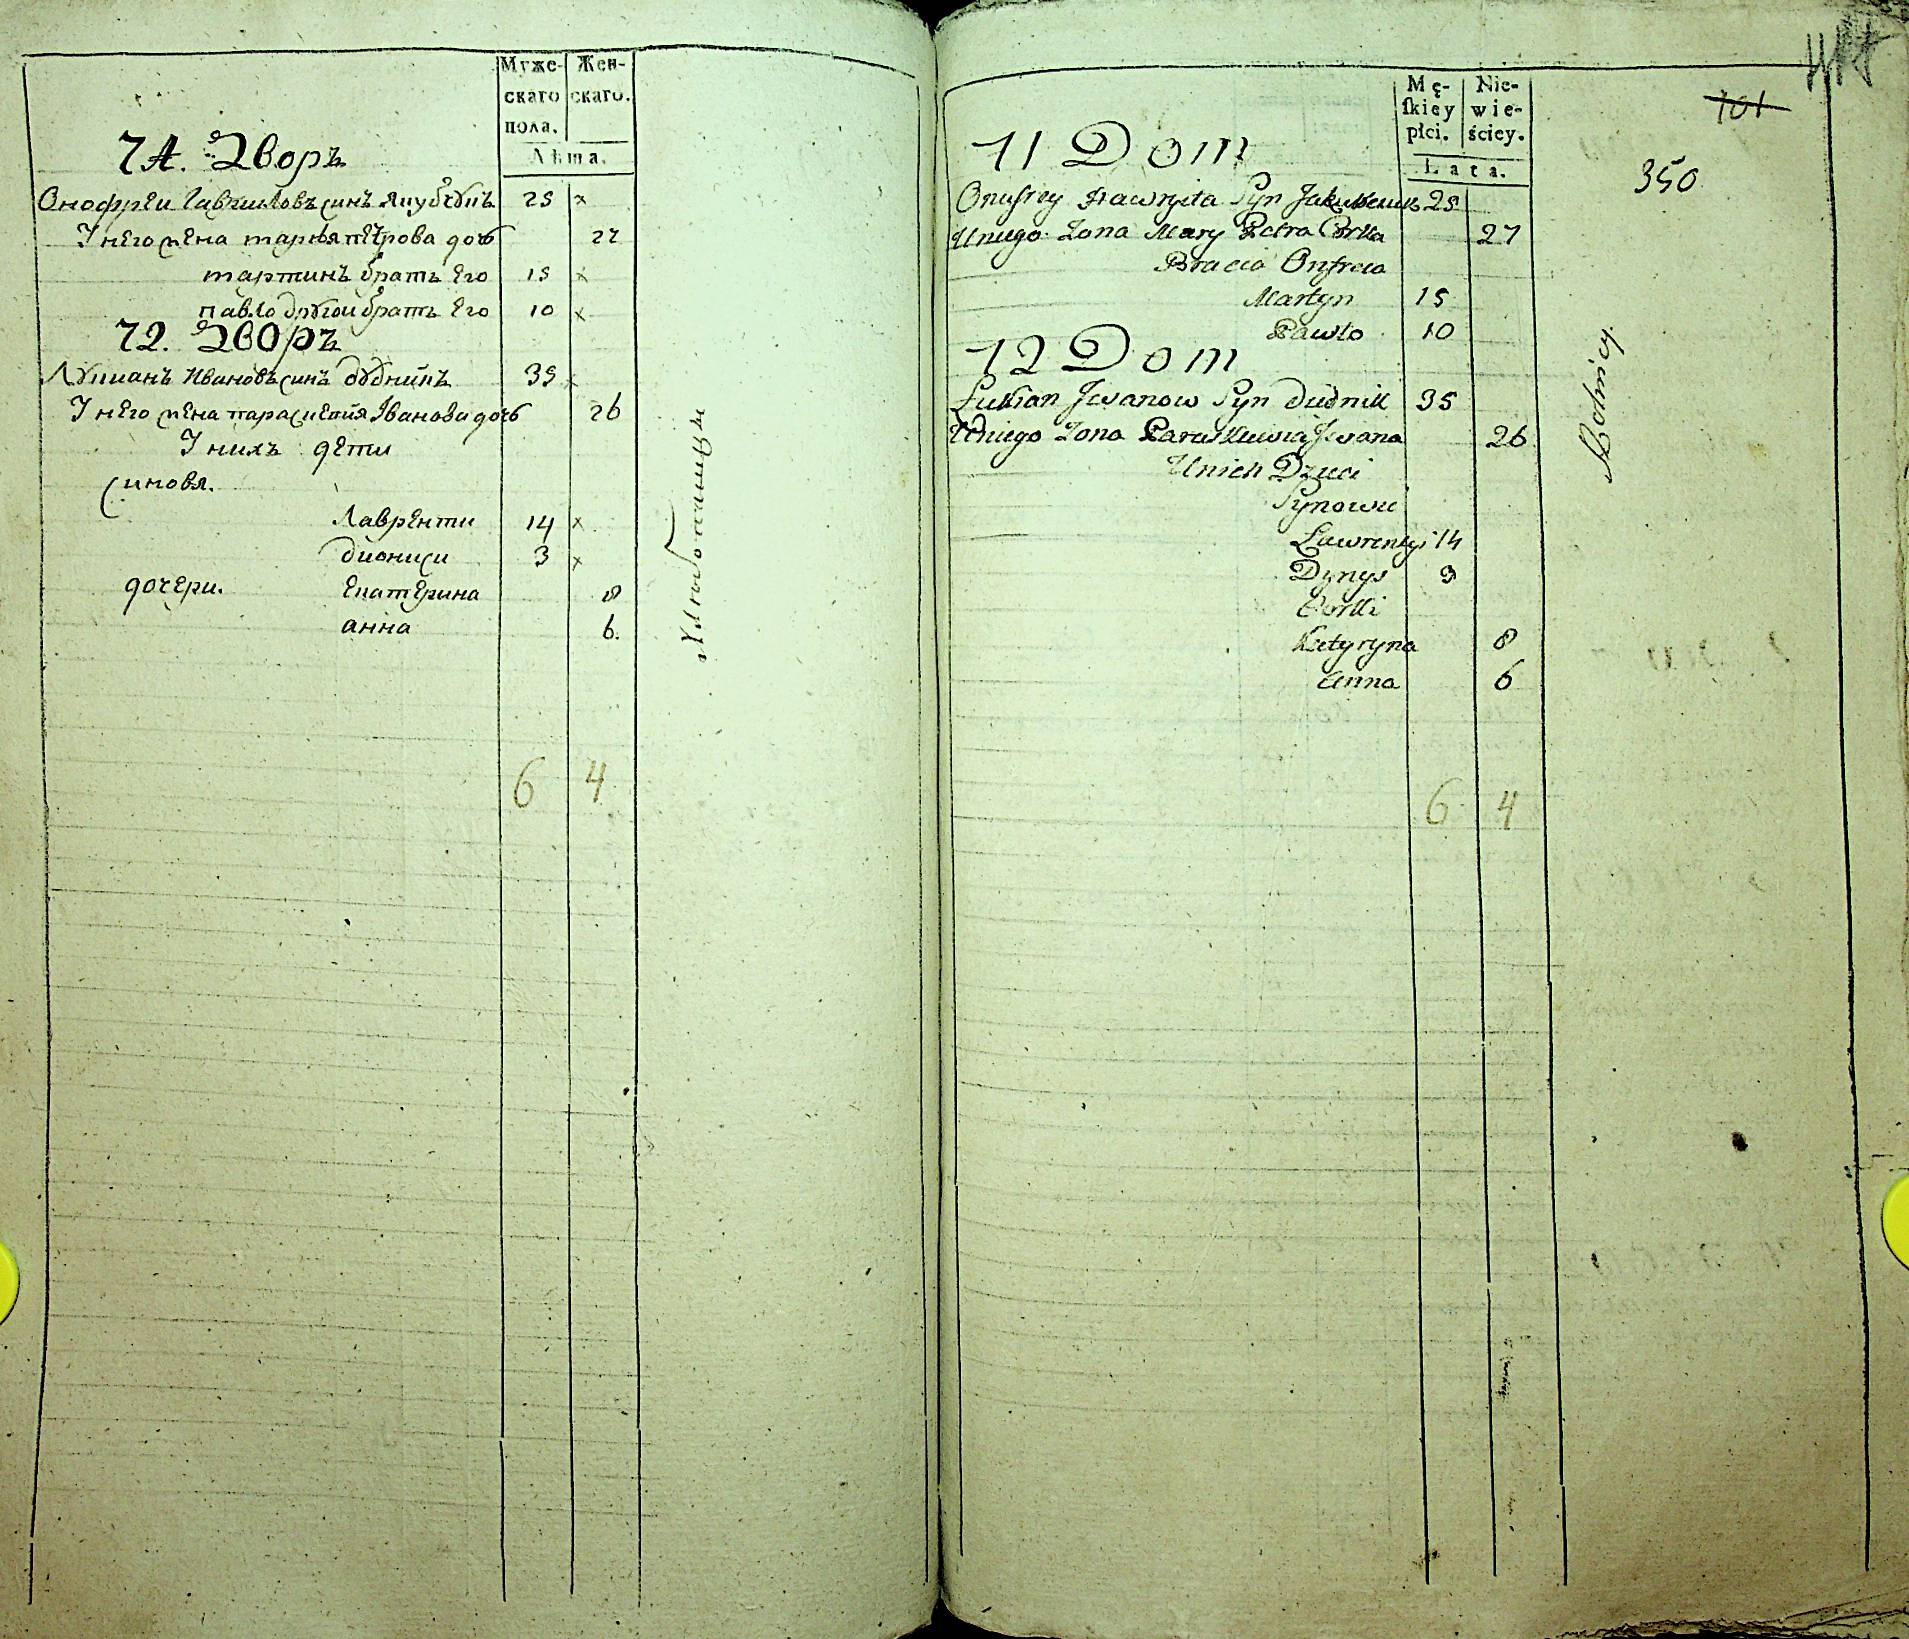 Муже-
скаго
пола.
Жен-
скаго.
Лѣта.
71. Дворъ
Онофреи Гаврилловъ синъ Якубчукъ 25 х
У него жена марья пєтрова дочь 27
мартинъ братъ Его 15 х
павло другои братъ Его 10 х
72. Дворъ
Лукианъ Ивановъ синъ дудникъ 35 х
У него жена параскевия Иванова дочь 26
У нихъ дети
синовя.
Лаврєнти 14 х
диониси 3 х
дочєри. Екатєрина 8
анна 6.
6 4
Хлебопашцы
Mę-
ſkiey
płci.
Nie-
wie-
ściey.
Lata.
101
350
11 Dom
Onufrey Hawryła Syn Jakubczuk 25
Uniego Zona Mary Petra Corka 27
Bracia Onfreia
Martyn 15
Pawło 10
12 Dom
Łukian Jwanow Syn dudnik 35
Uniego Zona Paraskiewia Jwana 26
Unich Dzieci
Synowie
Ławrentyi 14
Dynys 3
Corki
Katyryna 8
Anna 6
6 4
Rolnicy